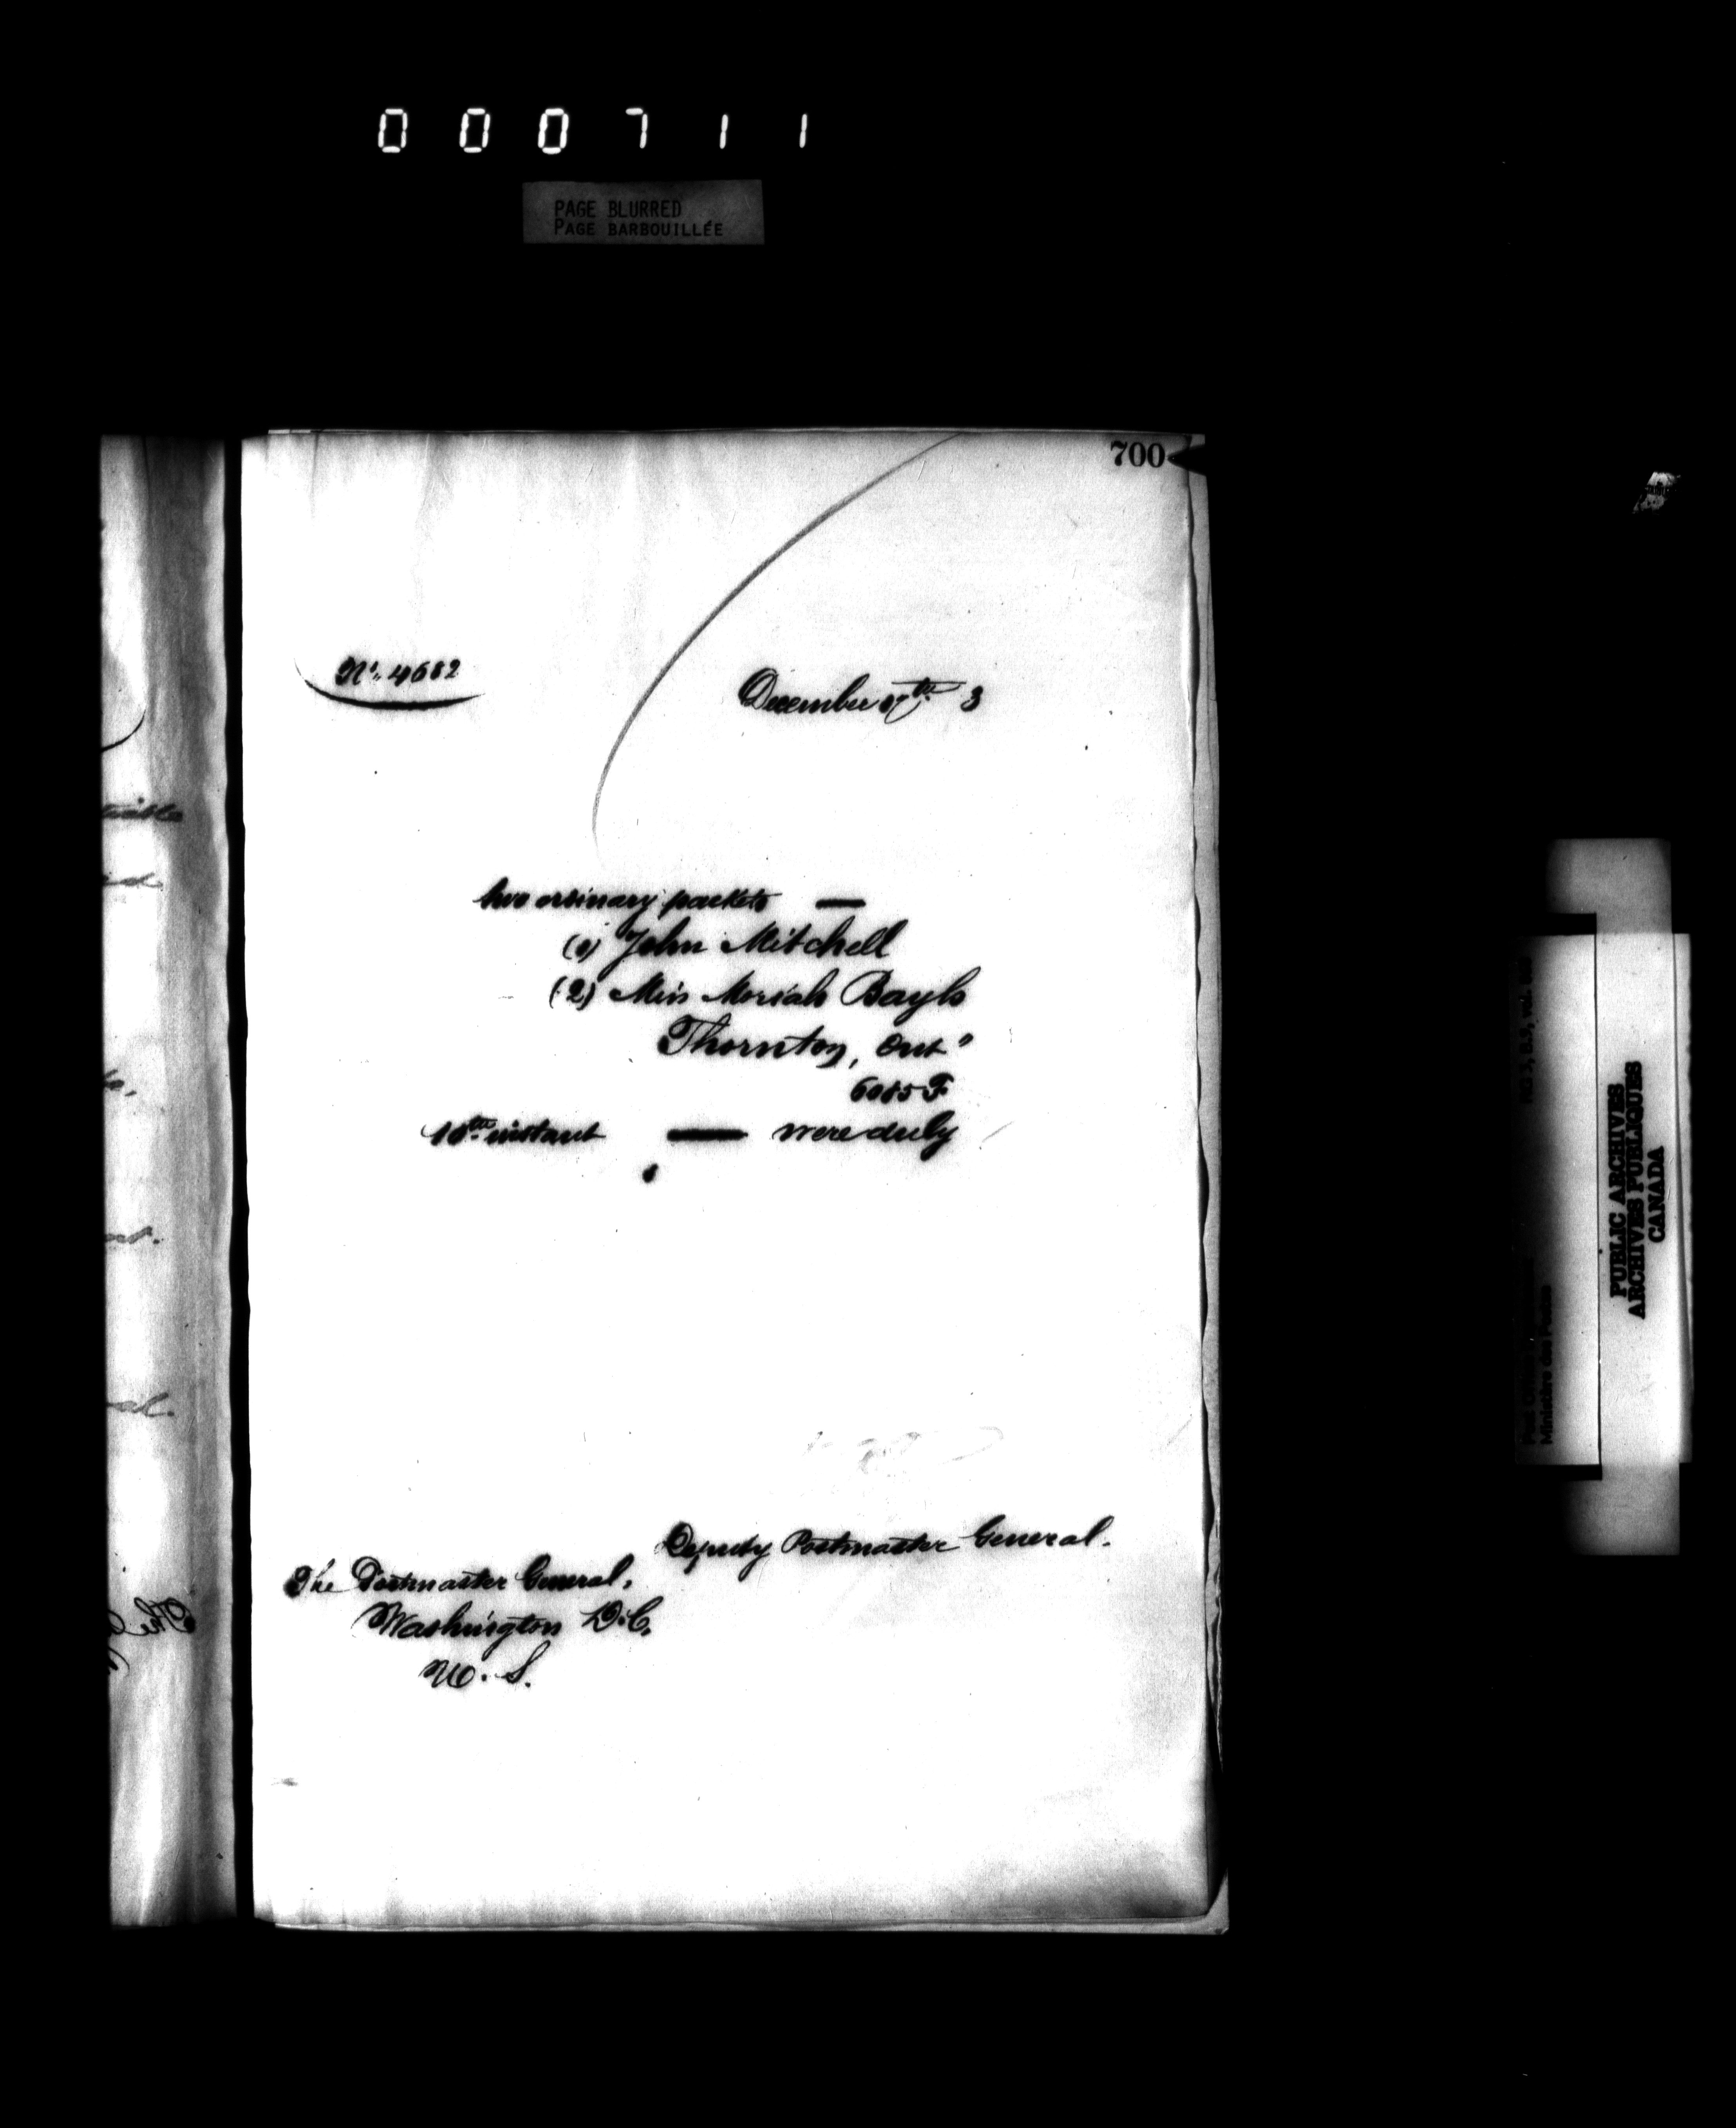 000711
PAGE BLURRED
PAGE BARBOUILLÉE
700
No. 4682
December 17th 3
two ordinary packets —
(1) John Mitchell
(2) Miss Moriah Bayls
Thornton, Ont
6085 F
10th instant — were duly
Deputy Postmaster General.
The Postmaster General,
Washington D.C.
U. S.
PUBLIC ARCHIVES
ARCHIVES PUBLIQUES
CANADA
Ministère des Postes